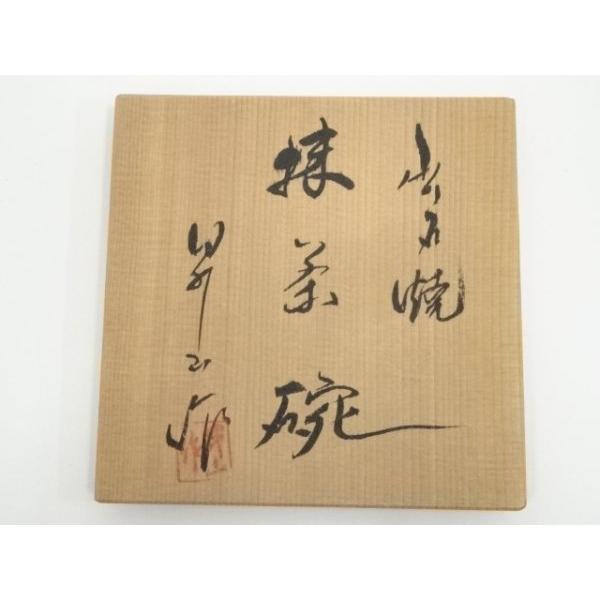 出石焼
抹茶碗
昇山作